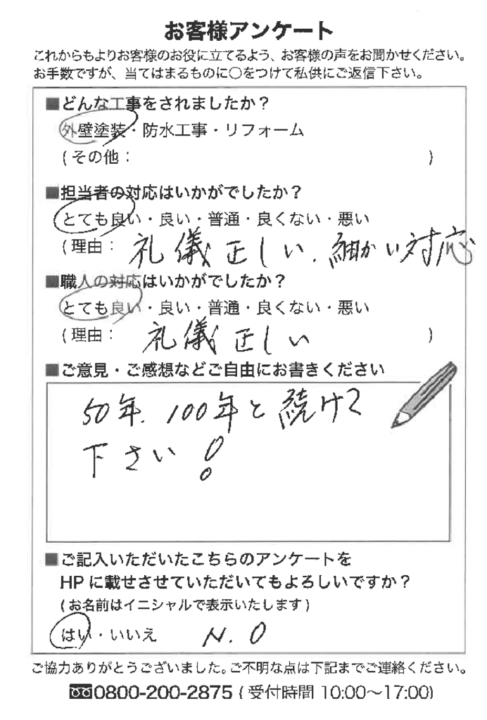 お客様アンケート
これからもよりお客様のお役に立てるよう、お客様の声をお聞かせください。
お手数ですが、当てはまるものに○をつけて私供にご返信下さい。
■どんな工事をされましたか？
外壁塗装・防水工事・リフォーム
(その他： )
■担当者の対応はいかがでしたか？
とても良い・良い・普通・良くない・悪い
(理由： 礼儀正しい、細かい対応
■職人の対応はいかがでしたか？
とても良い・良い・普通・良くない・悪い
(理由： 礼儀正しい )
■ご意見・ご感想などご自由にお書きください
50年、100年と続けて
下さい！
■ご記入いただいたこちらのアンケートを
HPに載せさせていただいてもよろしいですか？
(お名前はイニシャルで表示いたします)
はい・いいえ N.O
ご協力ありがとうございました。ご不明な点は下記までご連絡ください。
0800-200-2875 (受付時間 10:00〜17:00)